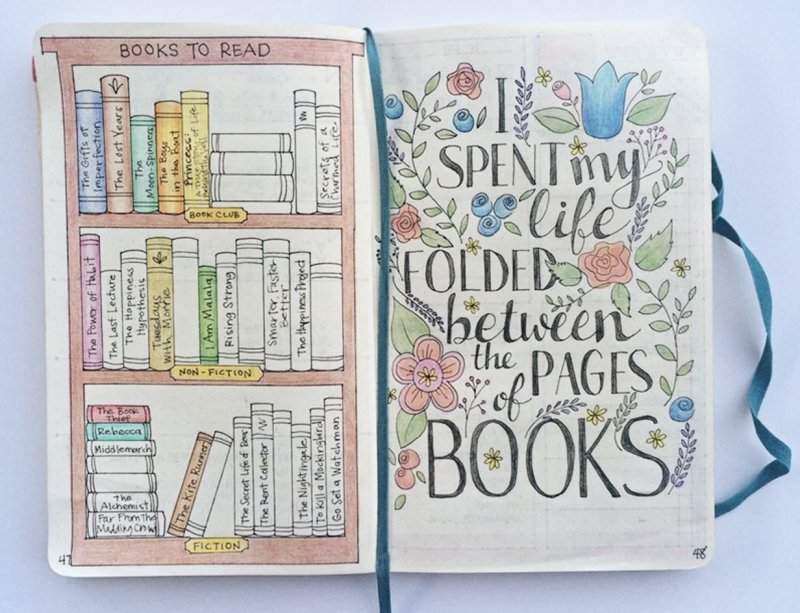 BOOKS TO READ
The Gifts of
Imperfection
The Lost Years
The
Moon-Spinners
The Boys
in the Boat
Princess:
A True Story of Life
Secrets of a
Charmed Life
BOOK CLUB
The Power of Habit
The Last Lecture
The Happiness
Hypothesis
Tuesdays
with Morrie
I Am Malala
Rising Strong
Smarter Faster
Better
The Happiness Project
NON-FICTION
The Book
Thief
Rebecca
Middlemarch
The
Alchemist
Far From The
Madding Crowd
The Kite Runner
The Secret Life of Bees
The Rent Collector
The Nightingale
To Kill a Mockingbird
Go Set a Watchman
FICTION
47
I
SPENT my
life
FOLDED
between
the
of PAGES
BOOKS
48